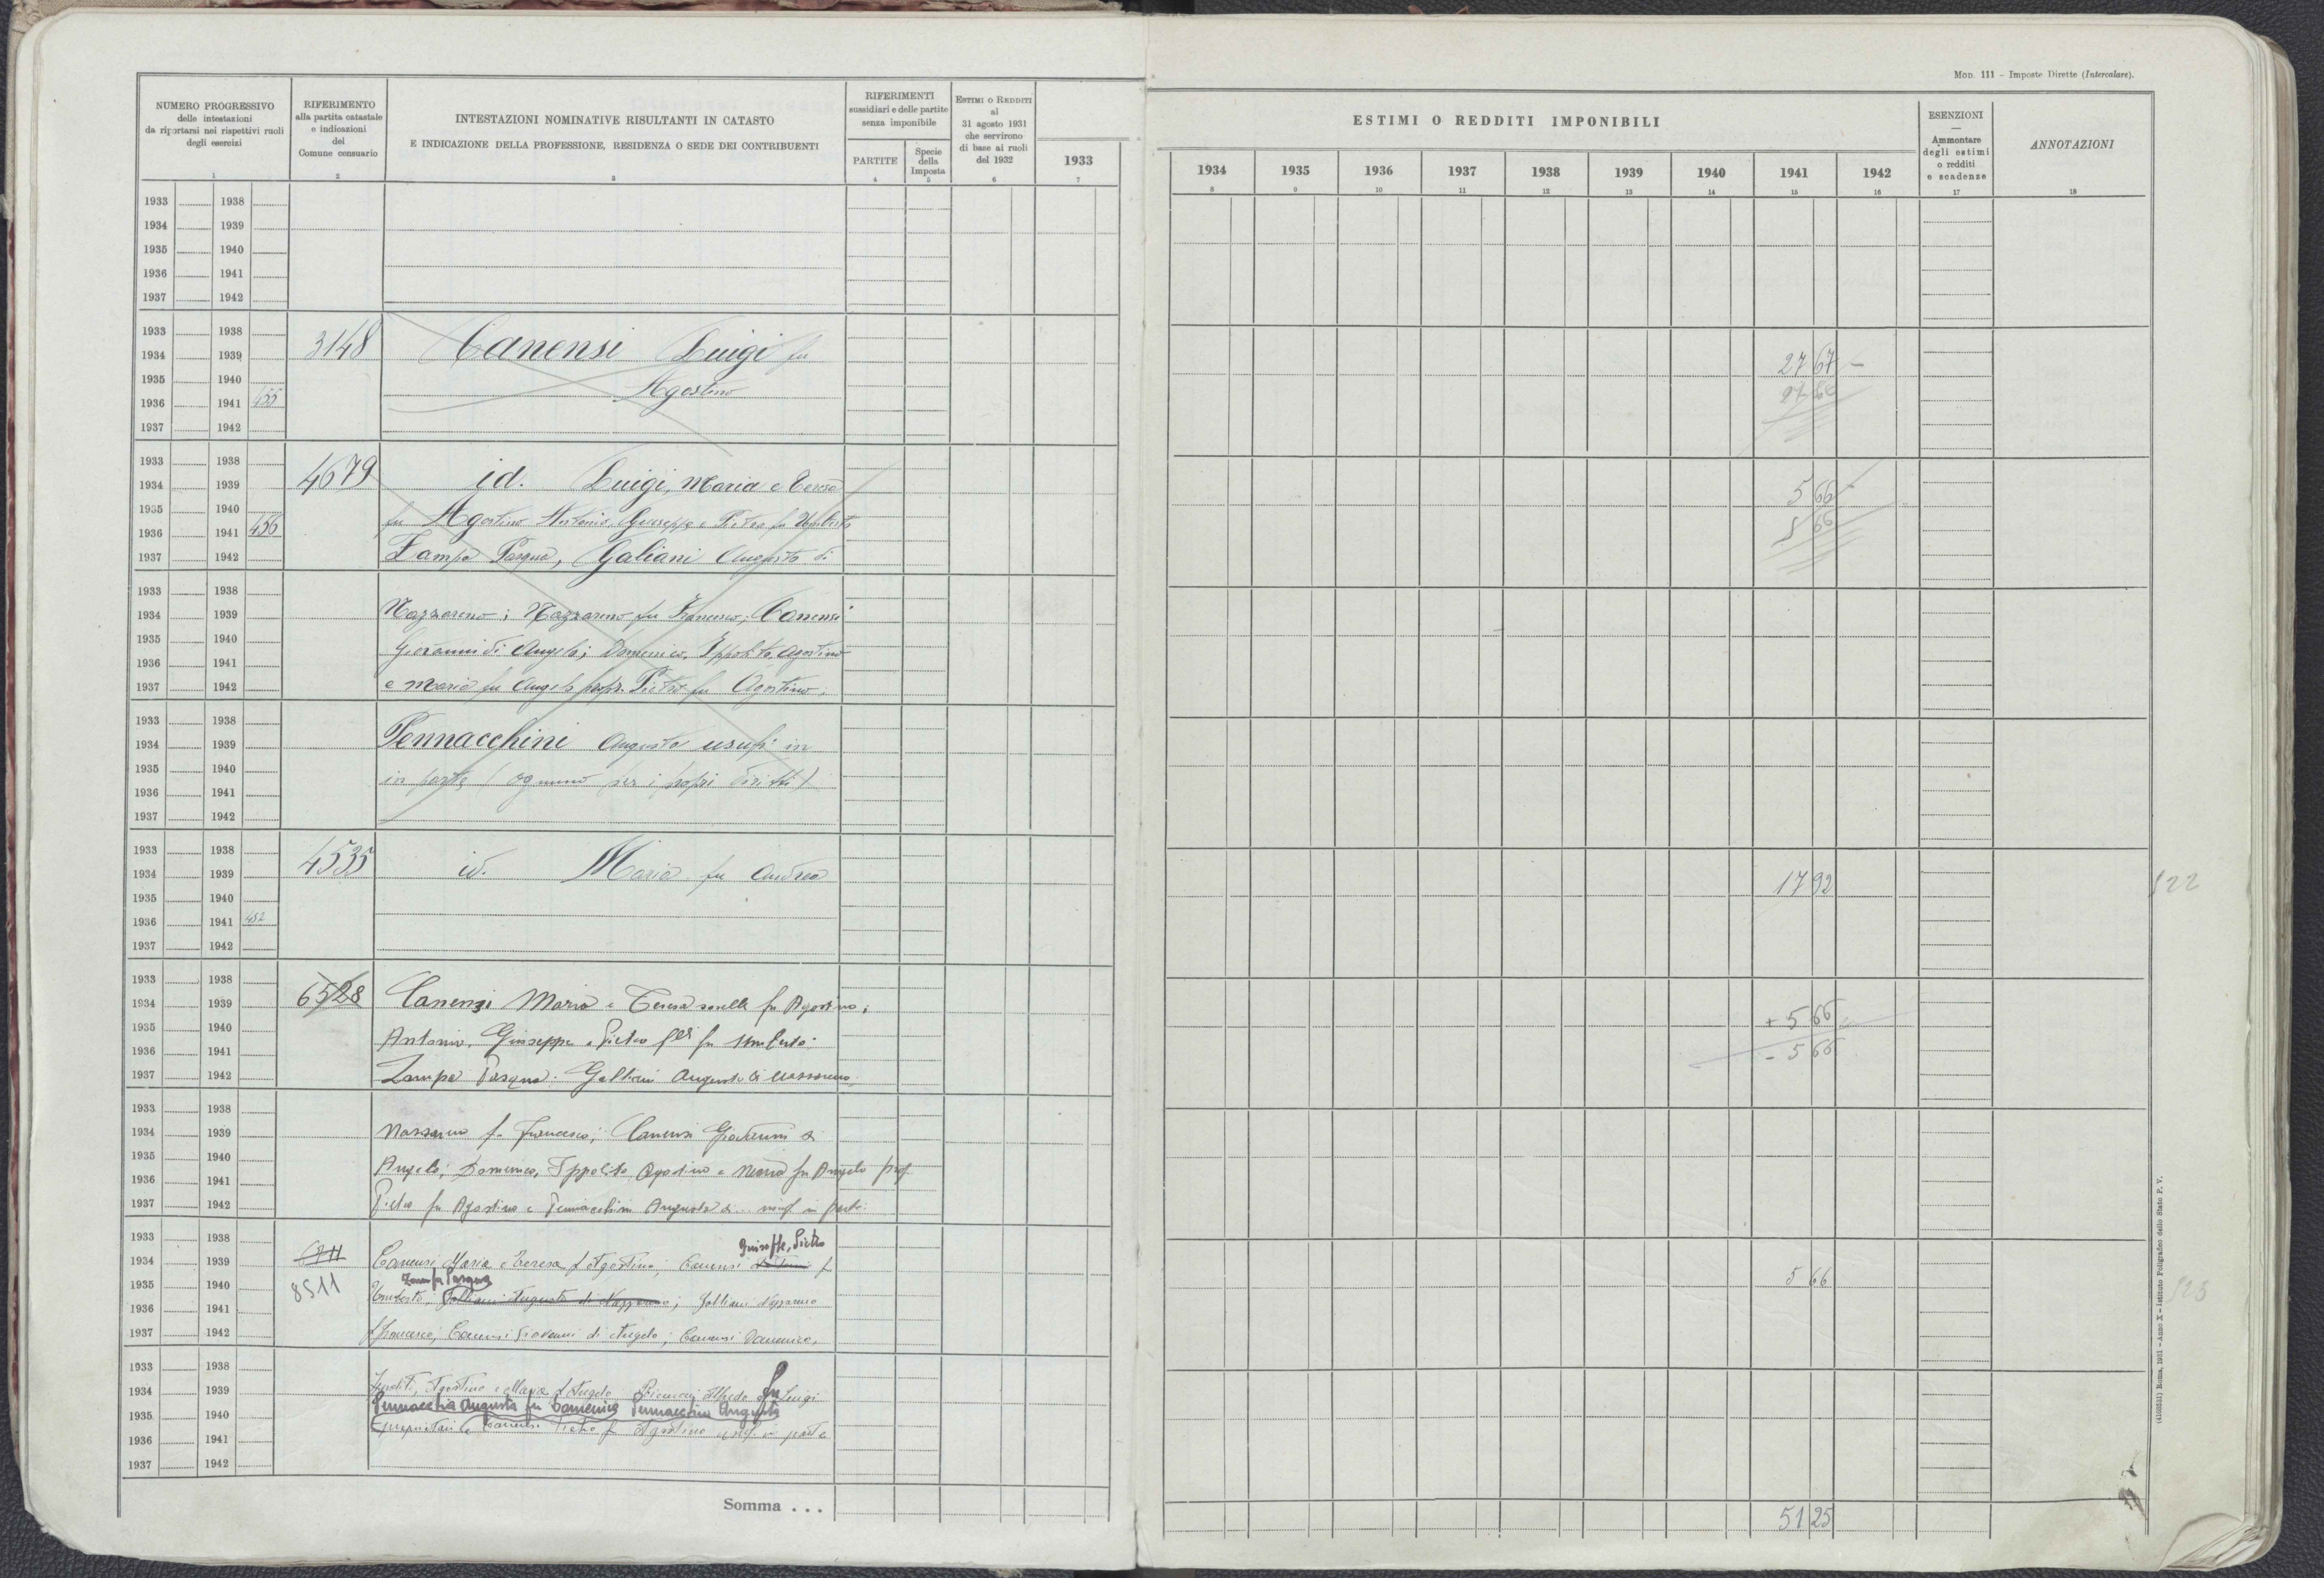 Mod. 111 – Imposte Dirette (Intercalare).
NUMERO PROGRESSIVO
delle intestazioni
da riportarsi nei rispettivi ruoli
degli esercizi
1
RIFERIMENTO
alla partita catastale
e indicazioni
del
Comune censuario
2
INTESTAZIONI NOMINATIVE RISULTANTI IN CATASTO
E INDICAZIONE DELLA PROFESSIONE, RESIDENZA O SEDE DEI CONTRIBUENTI
3
RIFERIMENTI
sussidiari e delle partite
senza imponibile
PARTITE
4
Specie
della
Imposta
5
ESTIMI O REDDITI
al
31 agosto 1931
che servirono
di base ai ruoli
del 1932
6
1933
7
ESTIMI O REDDITI IMPONIBILI
1934 1935 1936 1937 1938 1939 1940 1941 1942
8 9 10 11 12 13 14 15 16
ESENZIONI
—
Ammontare
degli estimi
o redditi
e scadenze
17
ANNOTAZIONI
18
1933 1938
1934 1939
1935 1940
1936 1941
1937 1942
1933 1938
3148 Canensi Luigi fu
1934 1939
27 67 –
1935 1940
Agostino
27 66
1936 1941 455
1937 1942
1933 1938
4679 id. Luigi, Maria e Teresa
1934 1939
5 66 –
1935 1940
fu Agostino Antonio, Giuseppe e Pietro fu Umberto
5 66
1936 1941 456
1937 1942
Zampa Pasqua, Galiani Augusto di
1933 1938
1934 1939
Nazzareno; Nazzareno fu Francesco; Canensi
1935 1940
Giovanni di Angelo; Domenico, Ippolito, Agostino
1936 1941
1937 1942
e Maria fu Angelo propr. Pietro fu Agostino;
1933 1938
1934 1939
Pennacchini Augusta usuf. in
1935 1940
in parte (ognuno per i propri diritti)
1936 1941
1937 1942
1933 1938
4535 id. Maria fu Andrea
1934 1939
17 92
122
1935 1940
1936 1941 452
1937 1942
1933 1938
6528 Canensi Maria e Teresa sorelle fu Agostino;
1934 1939
+ 5 66
1935 1940
Antonio, Giuseppe e Pietro flli fu Umberto;
– 5 66
1936 1941
1937 1942
Zampa Pasqua; Galliani Augusto di Nazzareno;
1933 1938
1934 1939
Nazzareno fu Francesco; Canensi Giovanni di
1935 1940
Angelo; Domenico, Ippolito, Agostino e Maria fu Angelo prop.
1936 1941
1937 1942
Pietro fu Agostino e Pennacchini Augusta di... usuf. in parte.
1933 1938
Giuseppe, Pietro
1934 1939
Canensi Maria e Teresa f Agostino; Canensi Antonio f
8511
5 66
Zampa Pasqua
1935 1940
Umberto, Galliani Augusto di Nazzareno; Galliani Nazzareno
123
1936 1941
1937 1942
f Francesco; Canensi Giovanni di Angelo; Canensi Domenico,
1933 1938
1934 1939
Ippolito, Agostino e Maria f Angelo Alfredo fu Luigi
Pennacchia Augusta fu Domenico Pennacchini Augusta
1935 1940
proprietari e Canensi Pietro fu Agostino usuf. in parte
1936 1941
1937 1942
Somma . . .
51 25
(4100331) Roma, 1931 – Anno X – Istituto Poligrafico dello Stato P. V.